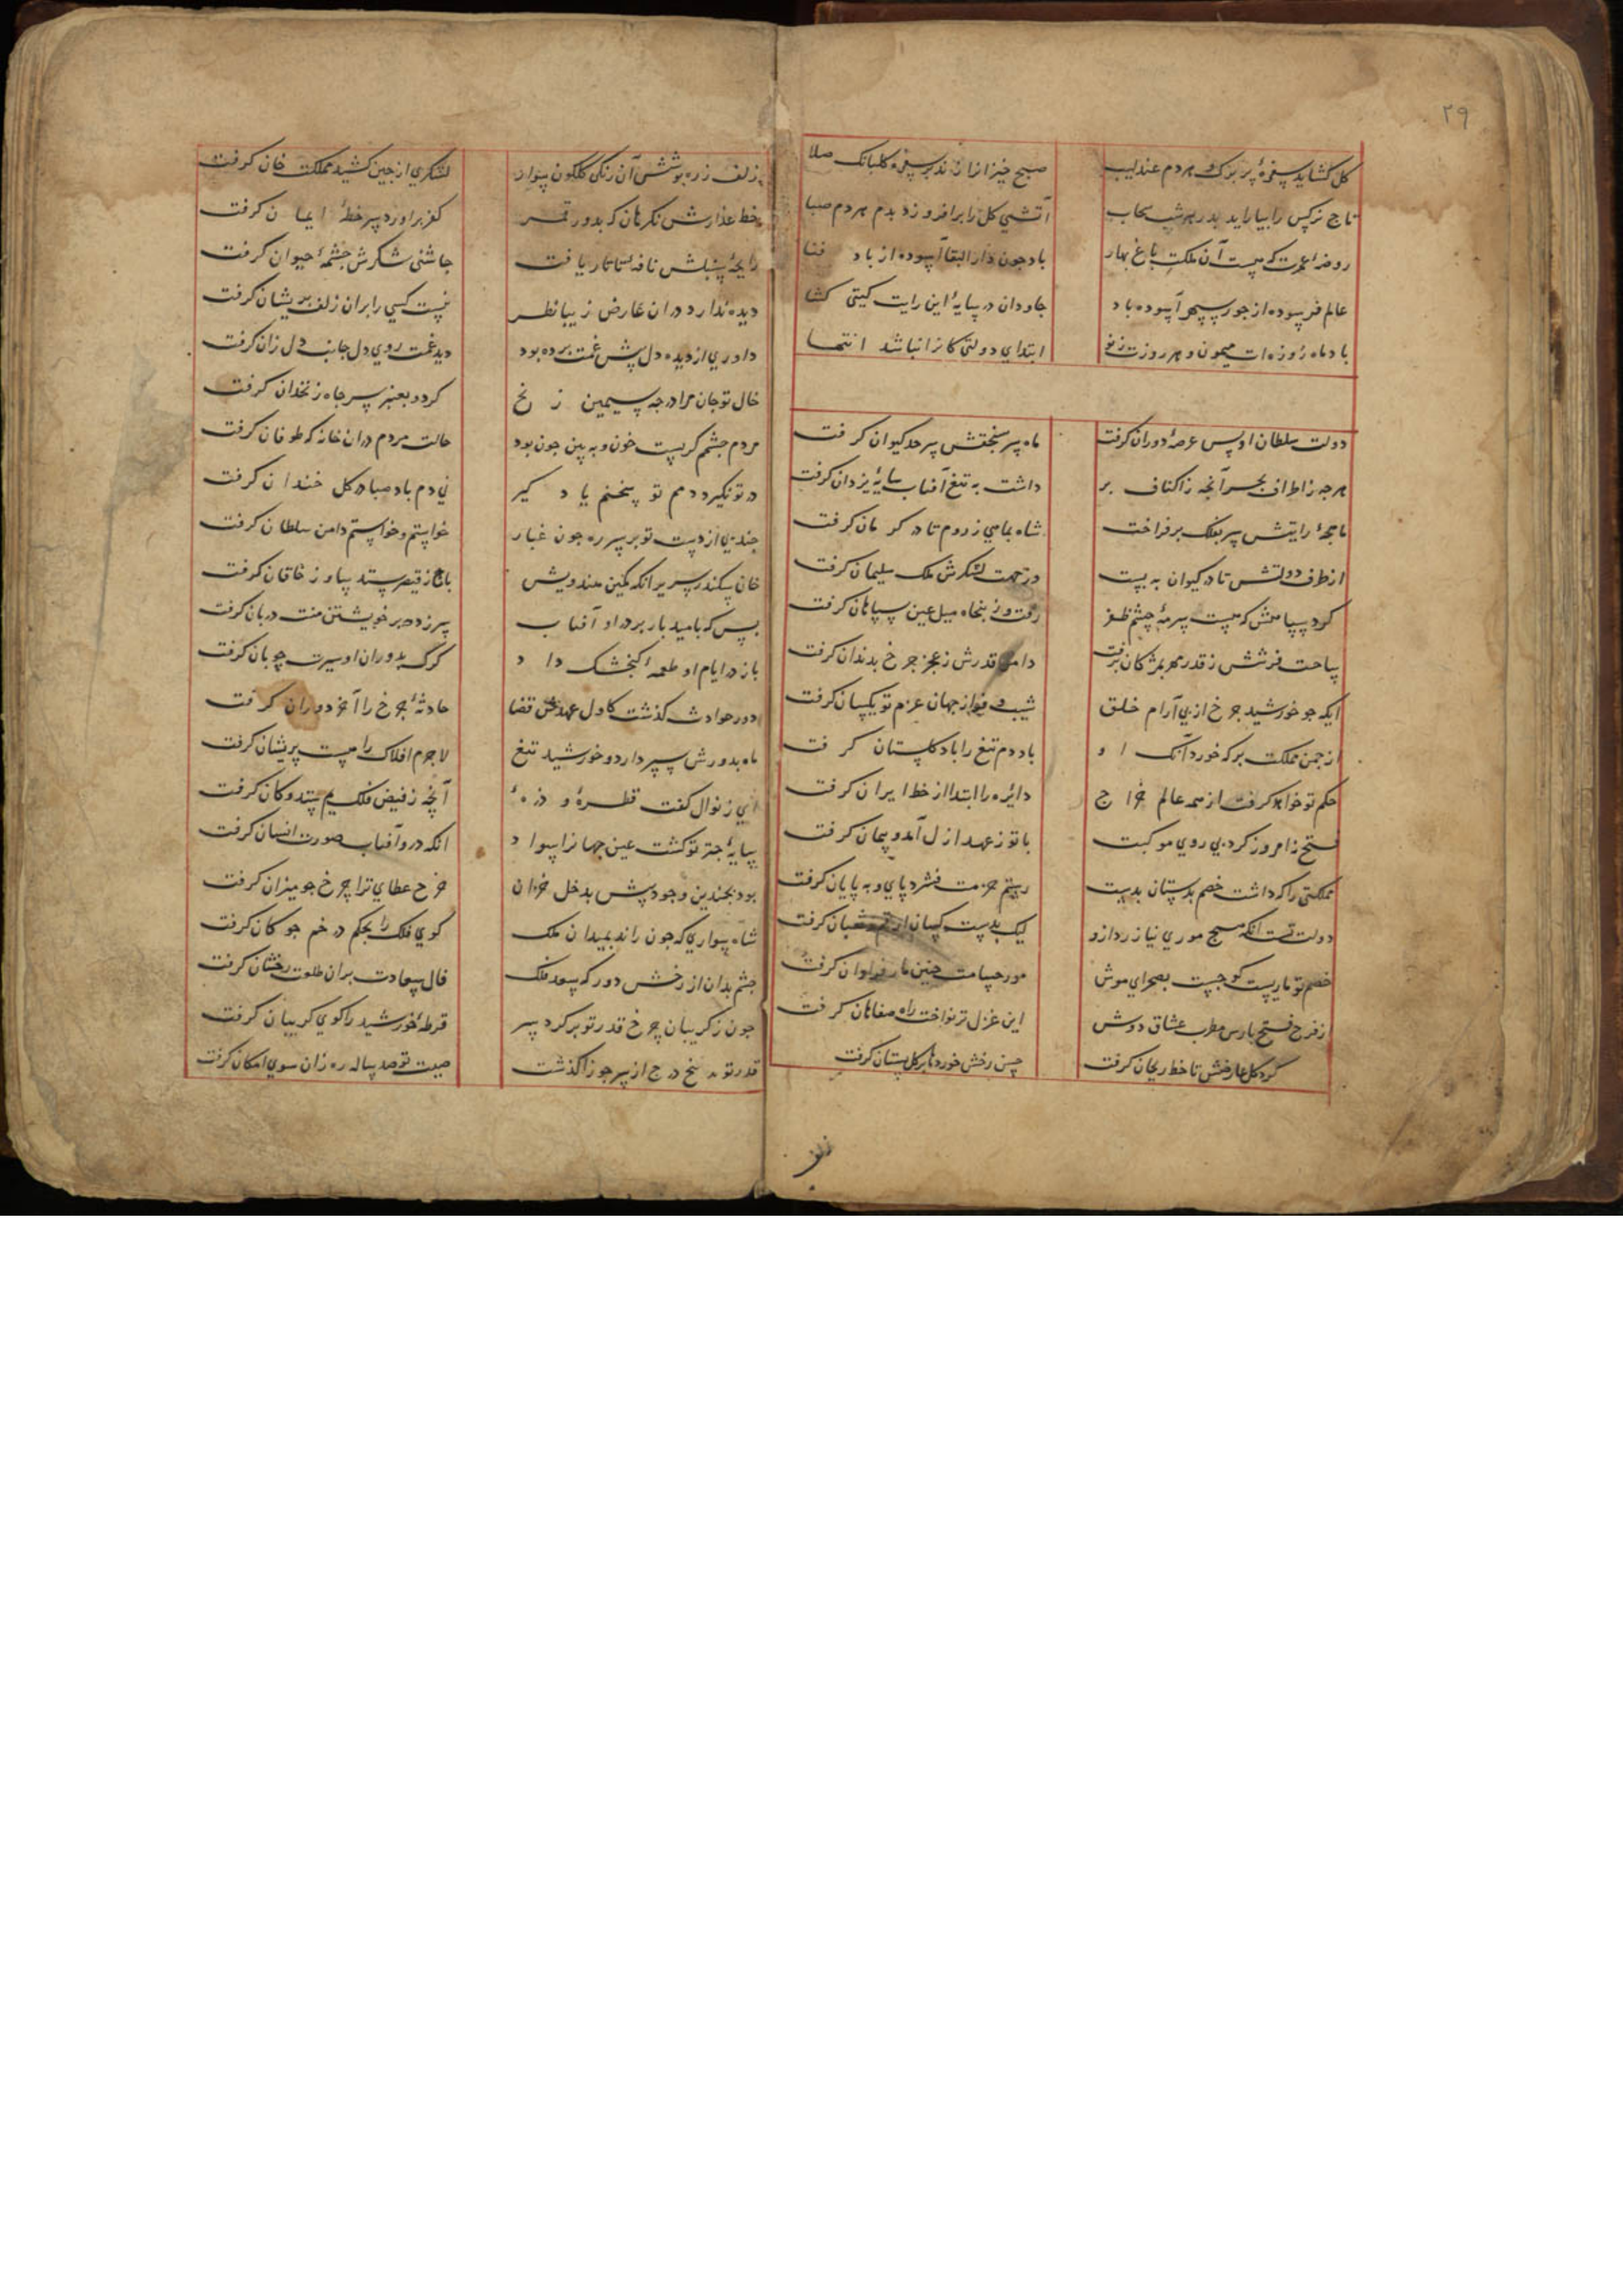 ۲۹
گل گشاید سفرهٔ پر برگ و هر دم عندلیب صبح خیزان را زند بر سفره گلبانگ صلا
تاج نرگس را بیاراید بدر هر شب سحاب آتش گل را برافروزد بدم هر دم صبا
روضهٔ عمرت که هست آن ملک باغ بهار باد چون دار البقا آسوده از باد فنا
عالم فرسوده از جور سپهر آسوده باد جاودان در سایهٔ این رایت گیتی گشا
باد ماه روزه ات میمون و هر روزت ز نو ابتدای دولتی کانرا نباشد انتها
دولت سلطان اویس عرصهٔ دوران گرفت ماه سر سنجقش سرحد کیوان گرفت
هر چه ز اطراف بحر آنچه ز اکناف بر داشت به تیغ آفتاب سایهٔ یزدان گرفت
ماهچهٔ رایتش سر بفلک بر فراخت شاه بماهی ز روم تا در کرمان گرفت
از طرف دولتش تا در کیوان به بست در جهت لشکرش ملک سلیمان گرفت
کرد سپاهش که هست سرمهٔ چشم ظفر رفت و ز پنجاه میل عین سپاهان گرفت
ساحت فرشش ز قدر مهر بمژگان برفت دامن قدرش ز عجز چرخ بدندان گرفت
ایکه چو خورشید چرخ از پی آرام خلق شیب و فراز جهان عزم تو یکسان گرفت
از چمن مملکت بر که خورد آنک او باد دم تیغ را باد گلستان گرفت
حکم تو خواهد گرفت از همه عالم خراج دایره را ابتدا از خط ایران گرفت
فتح نه امروز کرد بی روی موکبت با تو ز عهد ازل آمد و پیمان گرفت
مملکتی را که داشت خصم بدستان بدست رستم حزمت فشرد پای و به پایان گرفت
دولت تست آنکه هیچ موری نیازرد ازو لیک بدست کسان
خصم تو ماریست کو جست بصحرای موش مور حسامت چنین مار فراوان گرفت
از فرح فتح پارس مطرب عشاق دوش این غزل تر نواخت راه صفاهان گرفت
گرد گل عارضش تا خط ریحان گرفت حسن رخش خورده ها بر گل بستان گرفت
زلف زره پوشش آن زنگی گلگون سوار لشکری از چین کشید مملکت خان گرفت
خط عذارش نگر هان که بدور قمر کفر برآورد سر خطهٔ ایمان گرفت
رایحهٔ سنبلش نافهٔ تاتار یافت چاشنی شکرش چشمهٔ حیوان گرفت
دیده ندارد در آن عارض زیبا نظر نیست کسی را بر آن زلف پریشان گرفت
داوری از دیده دل پیش غمت برده بود دید غمت روی دل جانب دل زان گرفت
خال تو جان مرا در چه سیمین زنخ کرد و بعنبر سر چاه زنخدان گرفت
مردم چشم گریست خون و به بین چون بود حالت مردم در آن خانه که طوفان گرفت
در تو نگیرد دمم تو سخنم یاد گیر نی دم باد صبا در گل خندان گرفت
چند پی از دست تو بر سر ره چون غبار خواستم و خواستم دامن سلطان گرفت
خان سکندر سریر آنکه کمین هندویش باج ز قیصر ستد ساو ز خاقان گرفت
بس که بامید بار بر در او آفتاب سر زده بر خویشتن منت دربان گرفت
باز در ایام او طعمه بگنجشک داد گرگ بدوران او سیرت چوبان گرفت
دور حوادث گذشت کاول عهدش قضا حادثهٔ چرخ را آخر دوران گرفت
ماه بدورش سپر دارد و خورشید تیغ لاجرم افلاک را هیبت پریشان گرفت
ای ز نوال کفت قطرهٔ و ذرهٔ آنچه ز فیض فلک یم ستد و کان گرفت
سایهٔ چتر تو گشت عین جهانرا سواد آنکه درو آفتاب صورت انسان گرفت
بود بچندین وجوه پیش بدخل خزان خرج عطای ترا چرخ چو میزان گرفت
شاه سواری که چون راند بمیدان ملک گوی فلک را بحکم در خم چوگان گرفت
چشم بدان از رخش دور که سعد فلک فال سعادت بر آن طلعت رخشان گرفت
چون ز گریبان چرخ قدر تو بر کرد سر قرطهٔ خورشید را گوی گریبان گرفت
قدر تو درج از سر جوزا گذشت صیت تو صد ساله ره زان سوی امکان گرفت